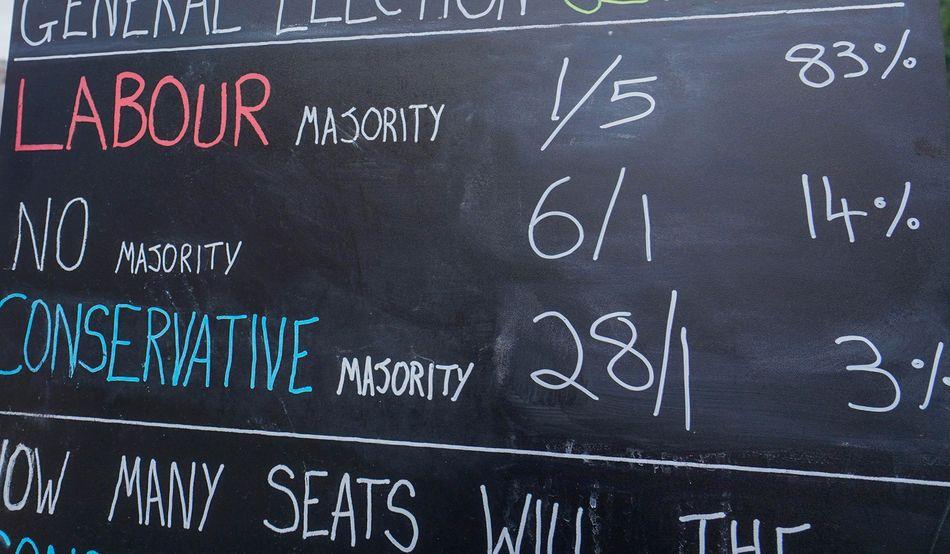 GENERAL ELECTION
LABOUR MAJORITY 1/5 83%
NO MAJORITY 6/1 14%
CONSERVATIVE MAJORITY 28/1 3%
HOW MANY SEATS WILL THE